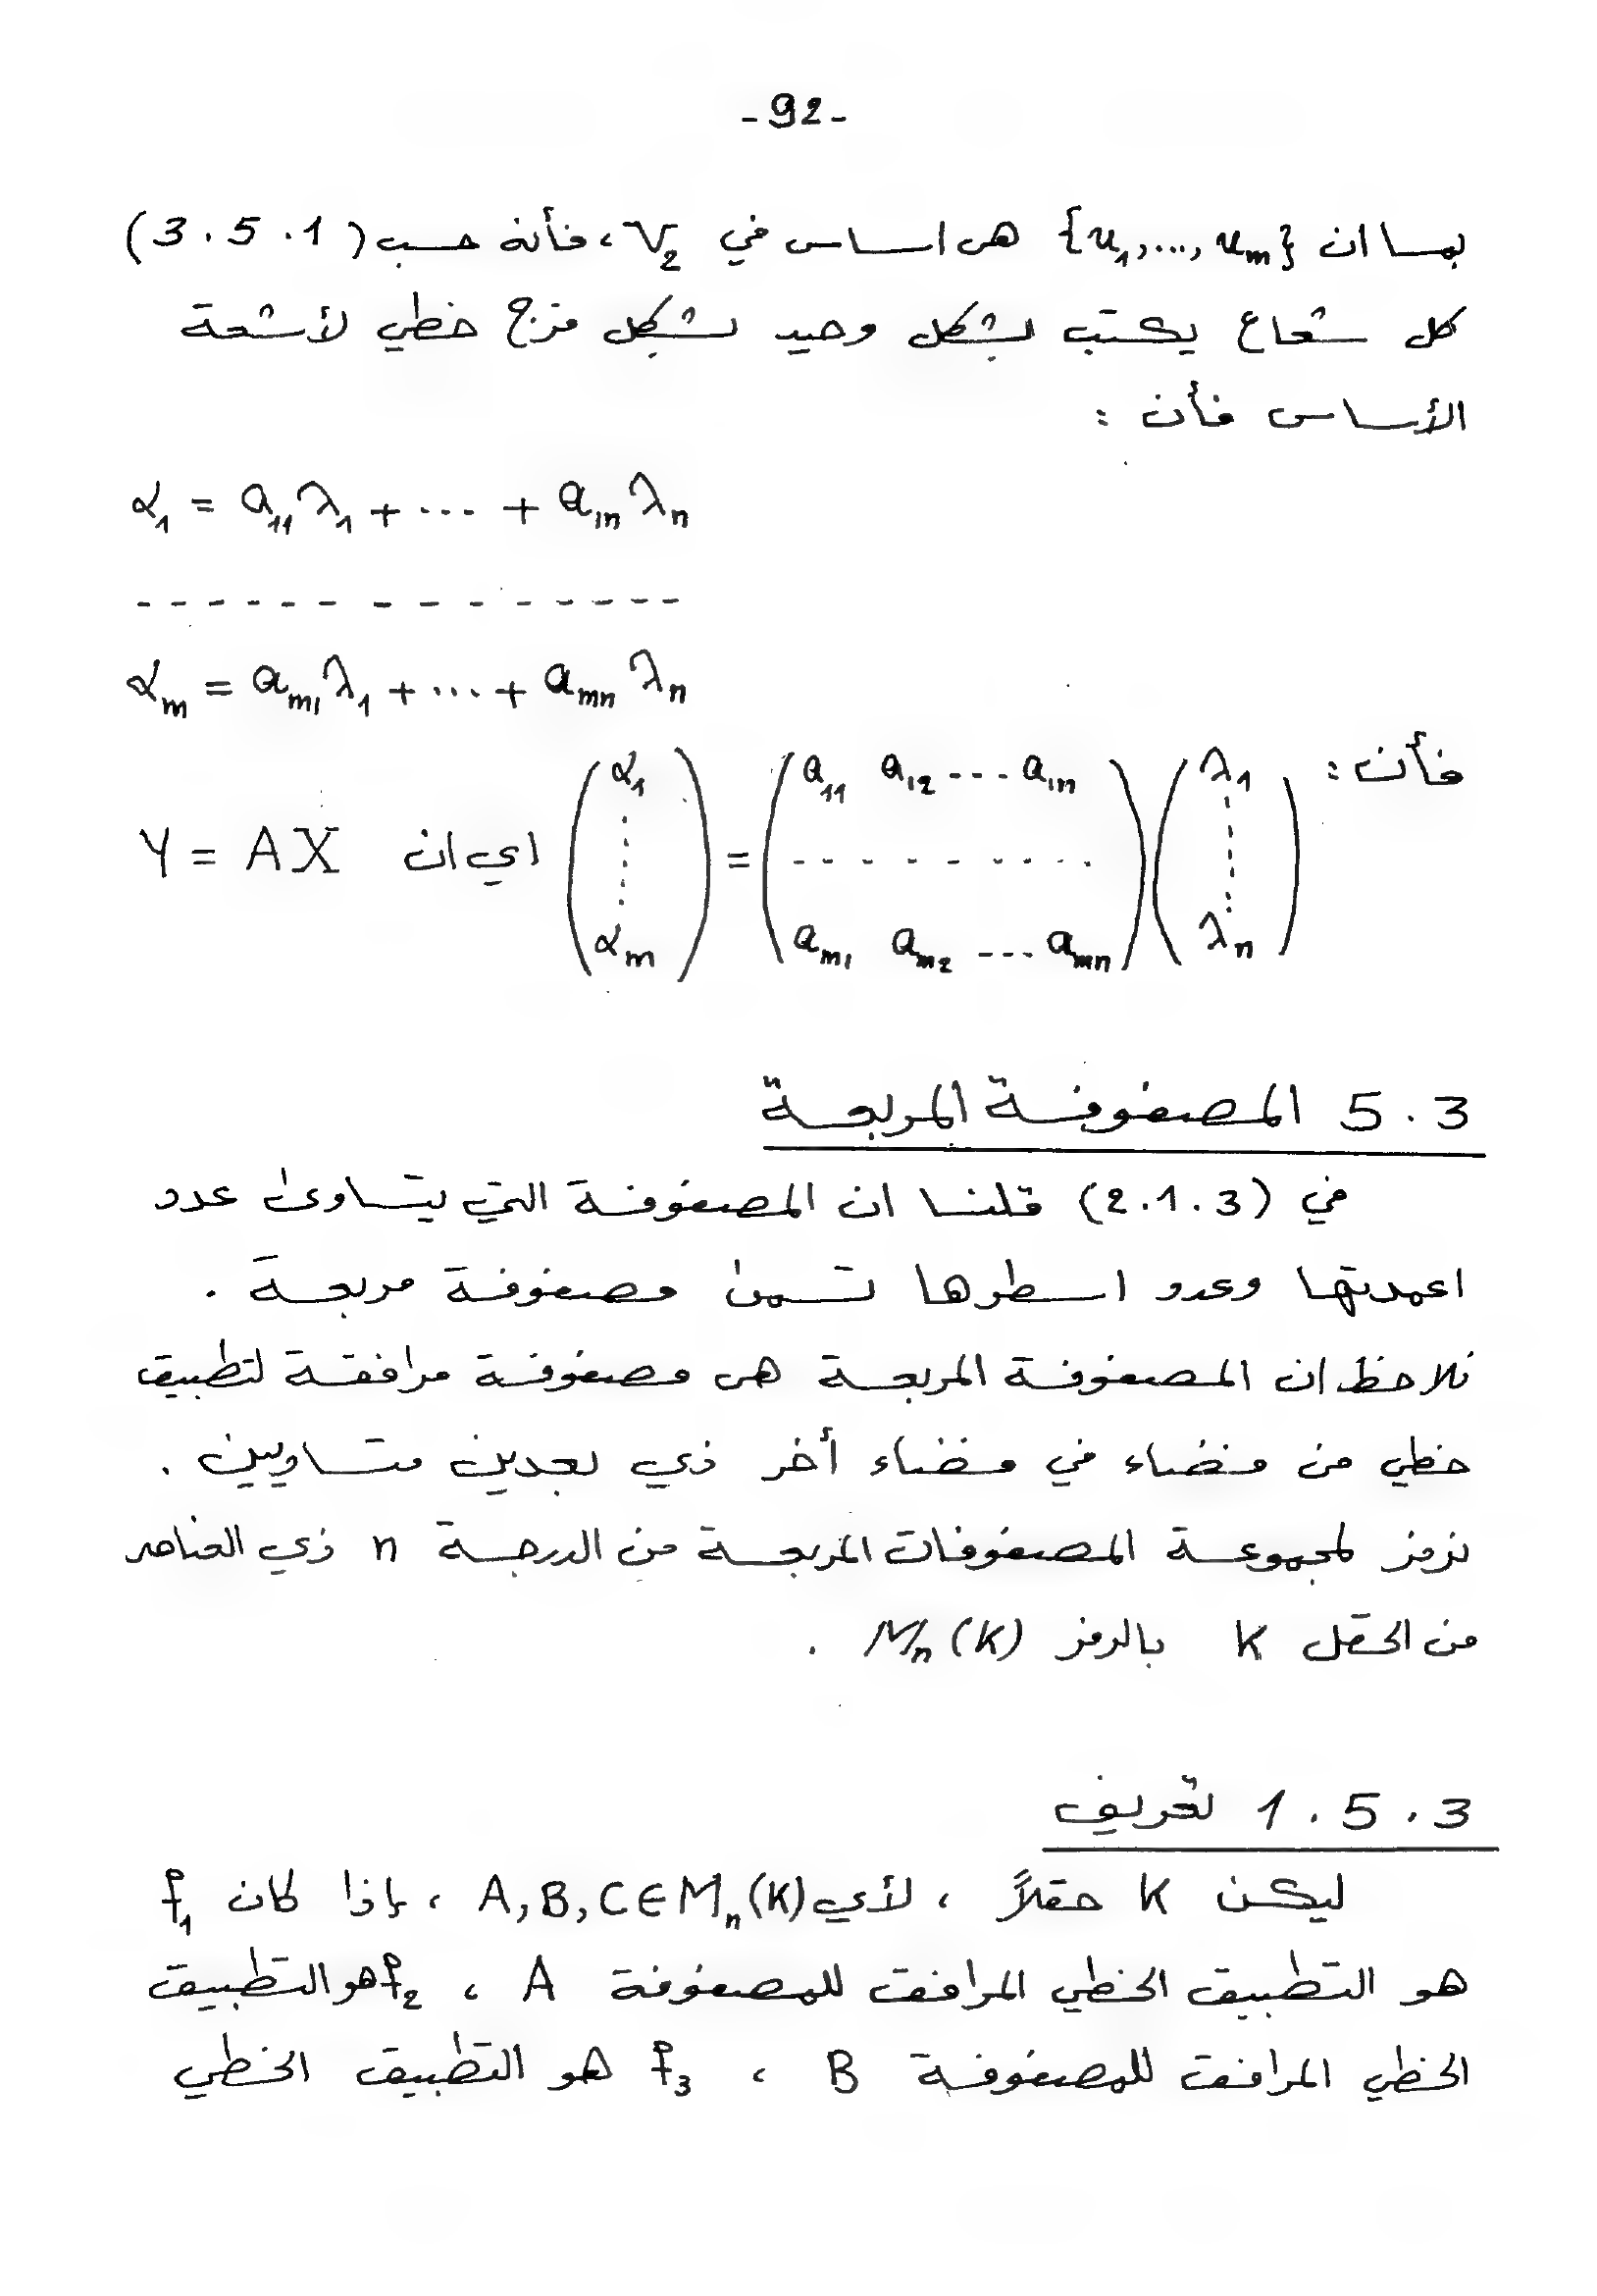 -92-
بما ان {u₁,...,uₘ} هي اساس في V₂ ، فأنه حسب (3.5.1)
كل شعاع يكتب بشكل وحيد بشكل مزج خطي لأشعة
الأساس فأن :
α₁ = a₁₁λ₁ + ... + a₁ₙλₙ
- - - - - - - - - - - - - - -
αₘ = aₘ₁λ₁ + ... + aₘₙλₙ
فأن : (α₁ ⋮ αₘ) = (a₁₁ a₁₂ --- a₁ₙ - - - - - - - - aₘ₁ aₘ₂ --- aₘₙ) (λ₁ ⋮ λₙ) اي ان Y = AX
5.3 المصفوفة المربعة
في (2.1.3) قلنا ان المصفوفة التي يتساوى عدد
اعمدتها وعدد اسطرها تسمى مصفوفة مربعة .
نلاحظ ان المصفوفة المربعة هي مصفوفة مرافقة لتطبيق
خطي من فضاء في فضاء أخر ذي بعدين متساويين .
نرمز لمجموعة المصفوفات المربعة من الدرجة n ذي العناصر
من الحقل K بالرمز Mₙ(K) .
1.5.3 تعريف
ليكن K حقلاً ، لأي A,B,C∈Mₙ(K) ، إذا كان f₁
هو التطبيق الخطي المرافق للمصفوفة A ، f₂ هو التطبيق
الخطي المرافق للمصفوفة B ، f₃ هو التطبيق الخطي